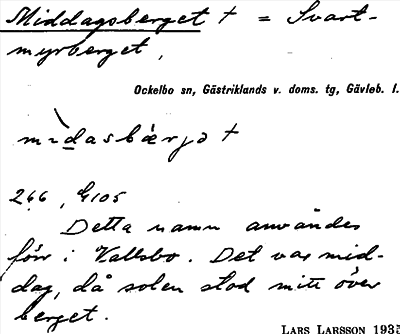 Middagsberget † = Svart-
myrberget,
Ockelbo sn, Gästriklands v. doms. tg, Gävleb. l.
mìdasbærjə †
266, G105
Detta namn användes
förr i Vallsbo. Det var mid-
dag, då solen stod mitt över
berget.
LARS LARSSON 1935